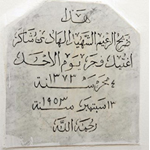 هذا
ضريح الزعيم الشهيد الهادي شاكر
اغتيل فجر يوم الاحد
٤ محرم سنة ١٣٧٣
١٣ سبتمبر سنة ١٩٥٣
رحمه الله